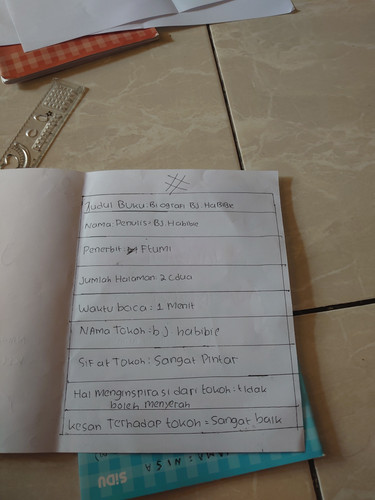 #
Judul Buku: Biografi Bj. HaBiBie
Nama Penulis: BJ. Habibie
Penerbit: Ftumi
Jumlah Halaman: 2 (dua
Waktu baca: 1 Menit
NAma Tokoh: b.j habibie
Sifat Tokoh: Sangat Pintar
Hal menginspirasi dari tokoh: tidak
boleh menyerah
kesan Terhadap tokoh = Sangat baik
SiDU
NAMA = NISA